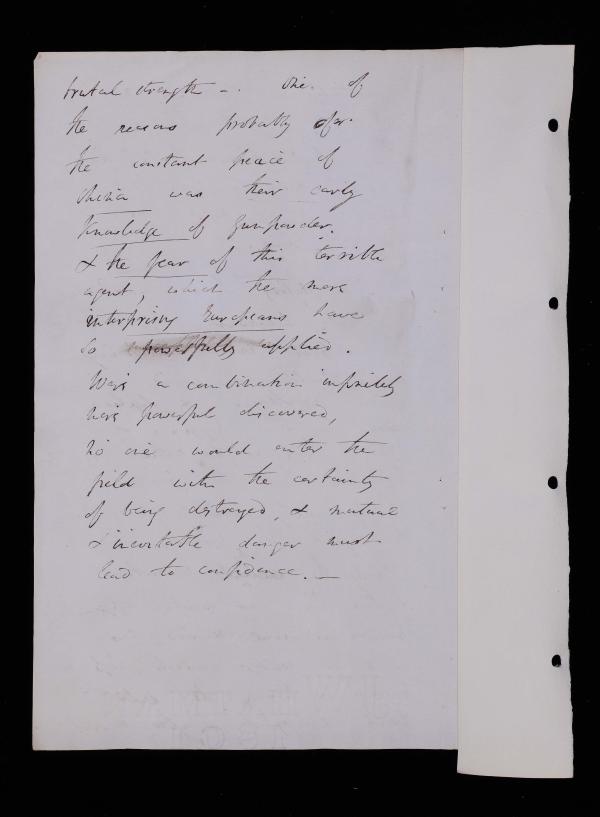 brutal strength –. One. of
the reasons probably of
the constant peace of
China was their early
knowledge of Gunpowder.
& the fear of this terrible
agent, which the more
interprising Europeans have
so powerfully applied.
Were a combination infinitely
more powerful discovered,
no one would enter the
field with the certainty
of being destroyed, & mutual
& inevitable danger must
lead to confidence. —